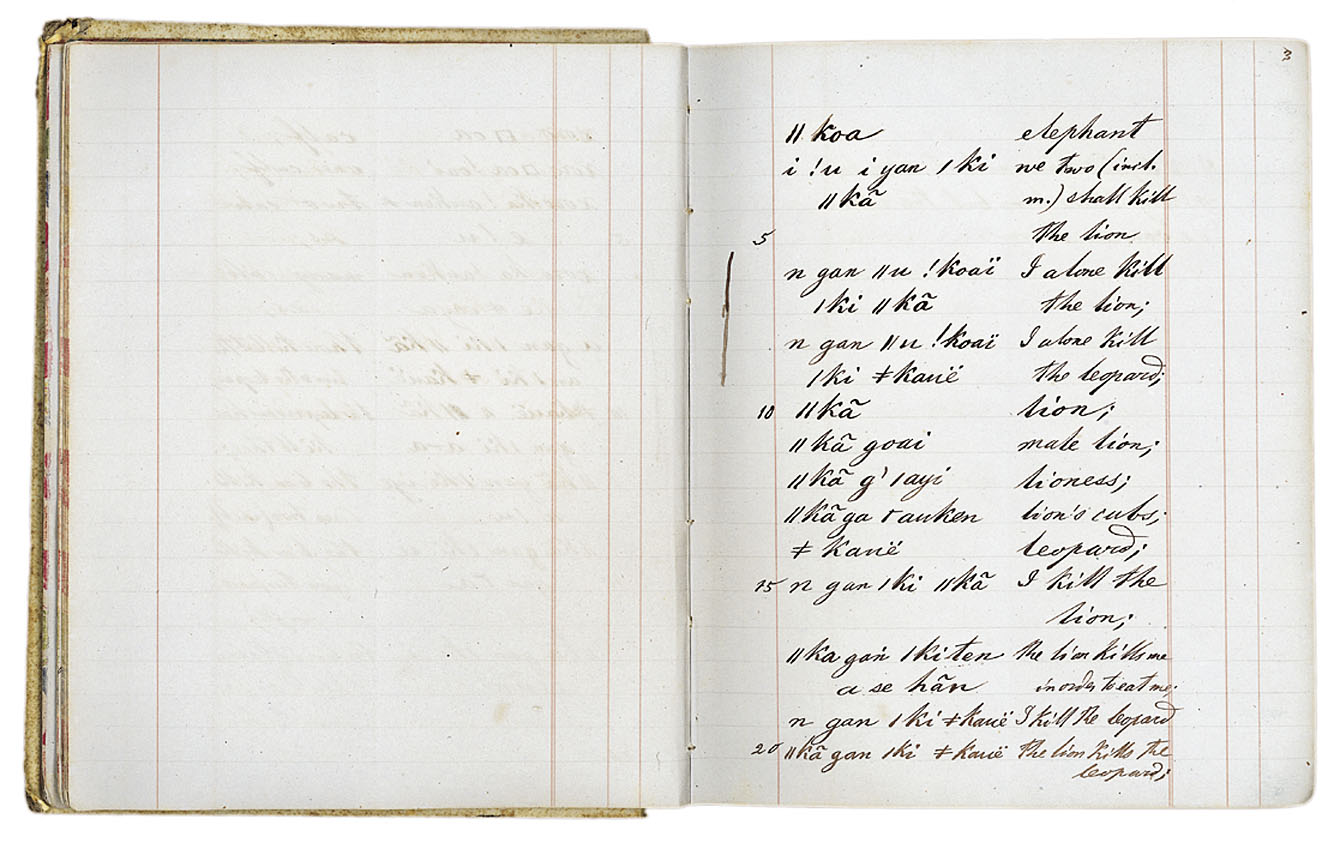 3
ǁ koa elephant
i ! u i yan ǀ ki we two (incl.
ǁ kã m.) shall kill
5 the lion
n gan ǁ u ! koaï I alone kill
ǀ ki ǁ kã the lion;
n gan ǁ u ! koaï I alone kill
ǀ ki ǂ kauë the leopard;
10 ǁ kã lion;
ǁ kã goai male lion;
ǁ kã g' ǀ ayi lioness;
ǁ kã ga auken lion's cubs;
ǂ kauë leopard;
15 n gan ǀ ki ǁ kã I kill the
lion;
ǁ ka gan ǀ ki ten the lion kills me
a se hãn in order to eat me;
n gan ǀ ki ǂ kauë I kill the leopard
20 ǁ kã gan ǀ ki ǂ kauë the lion kills the
leopard;